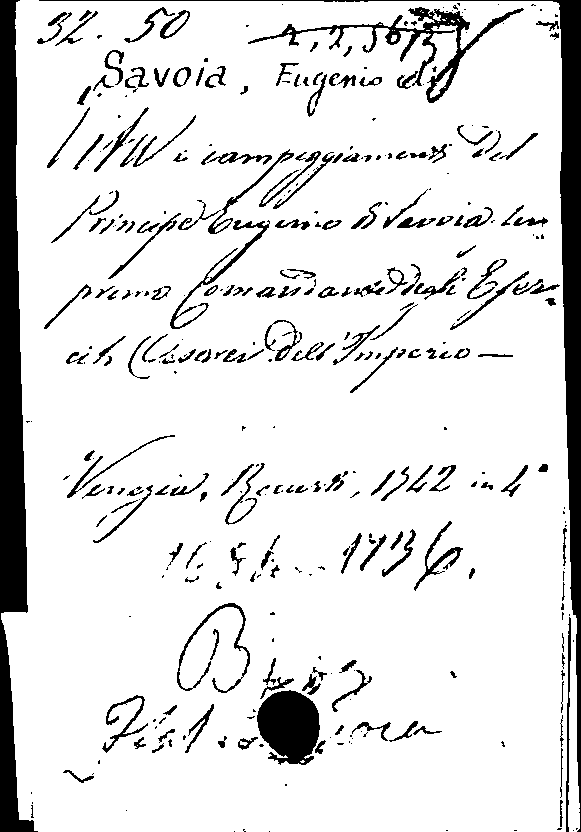 32. 50
Savoia, Eugenio di
Vita e campeggiamenti del
Principe Eugenio di Savoia Su=
premo Comandante degli Eser=
citi Cesarei dell'Imperio —
Venezia, Recurti, 1742 in 4°
1736.
B